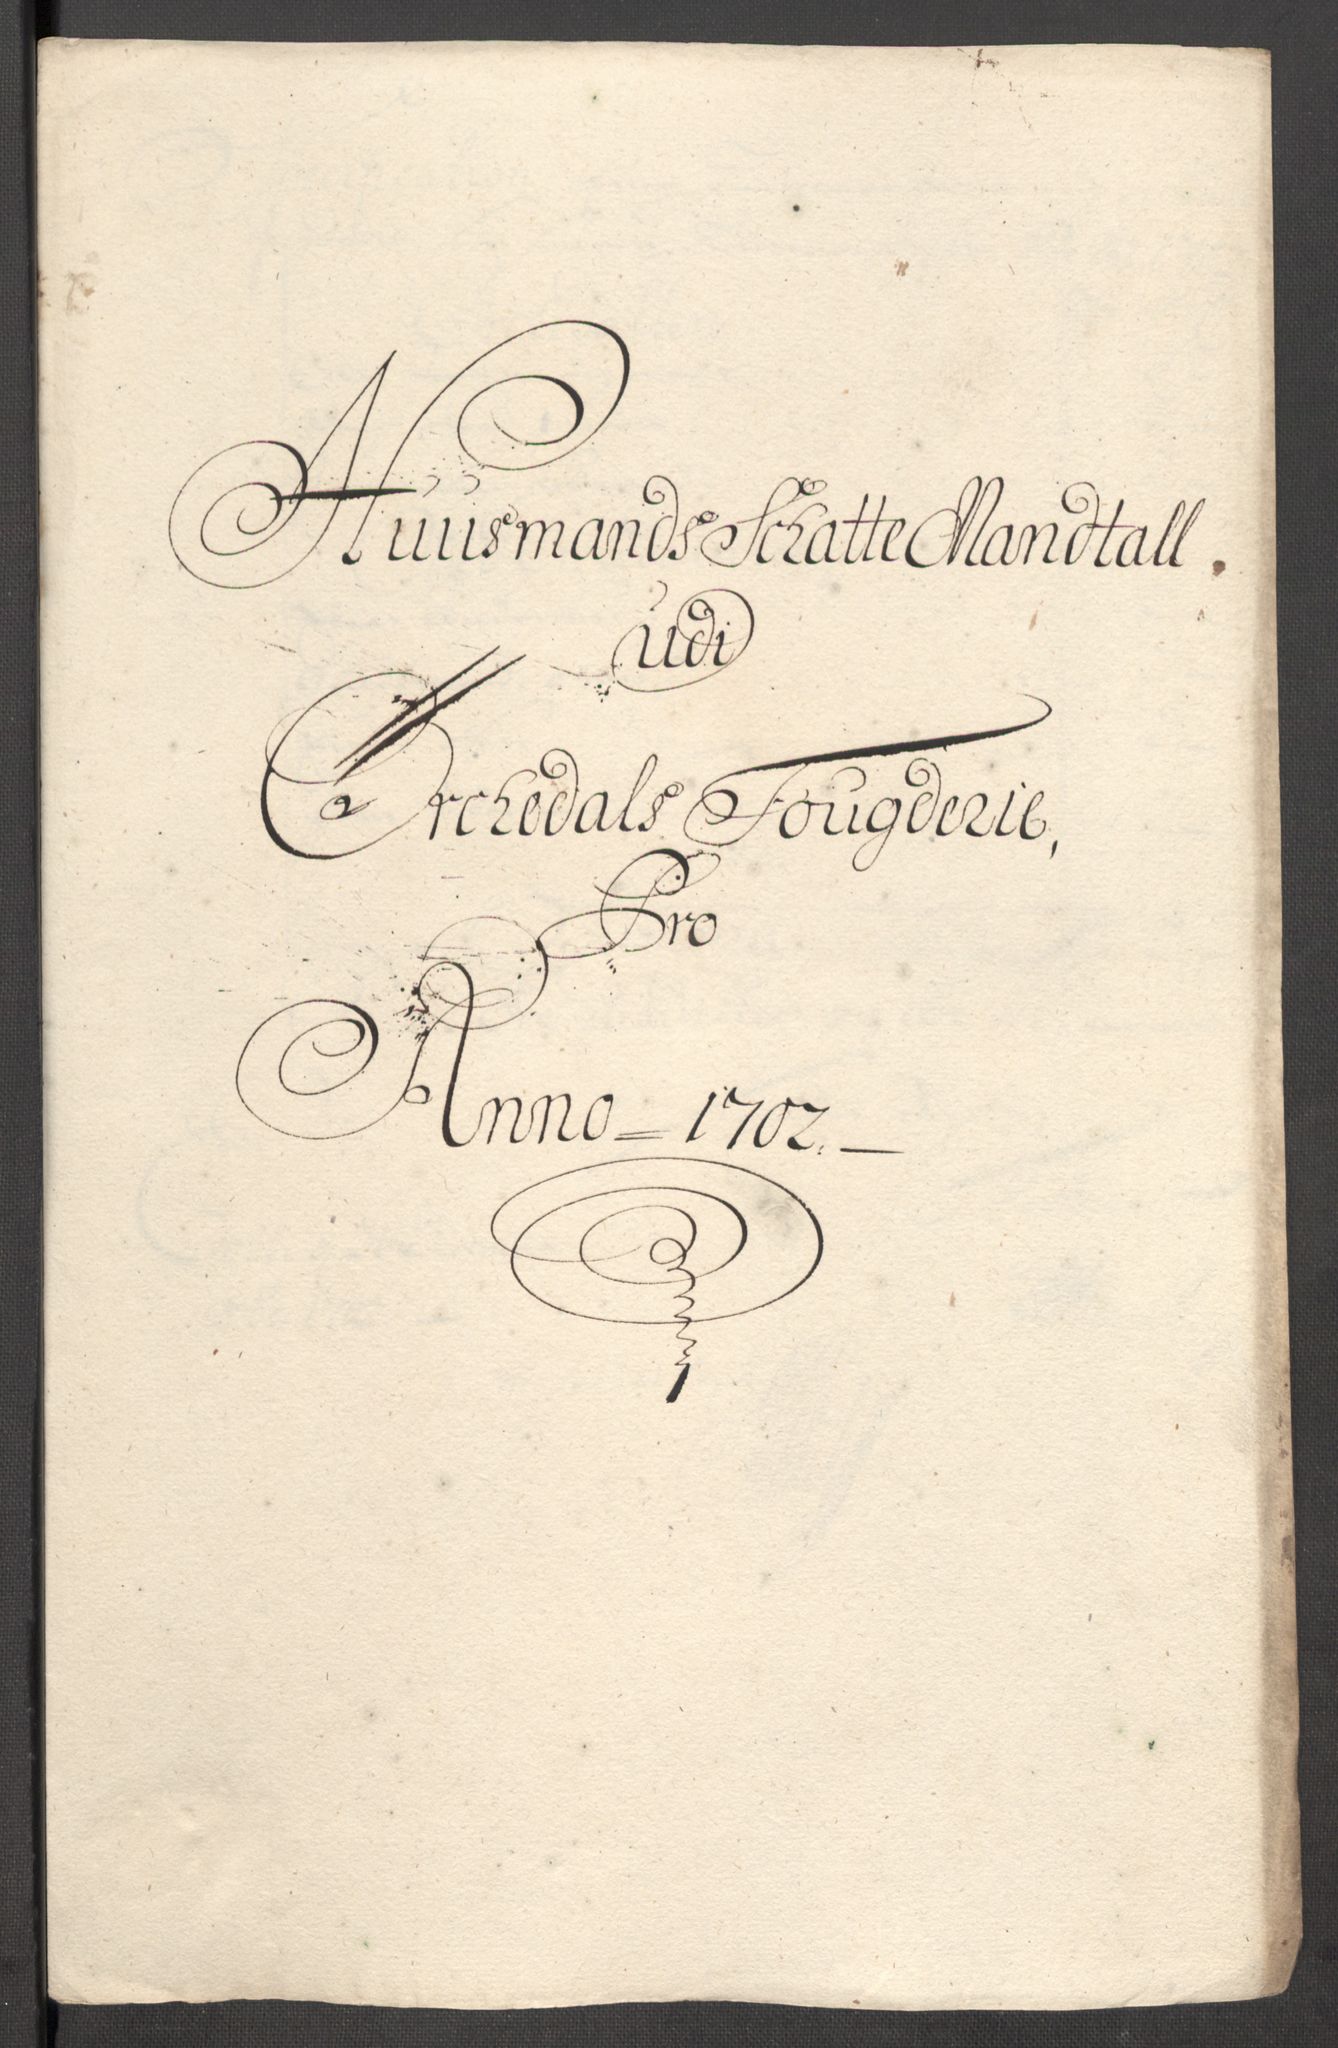 Huusmands Schatte Mandtall.
udi
Orckedals Fougderie,
Pro
Anno = 1702. —